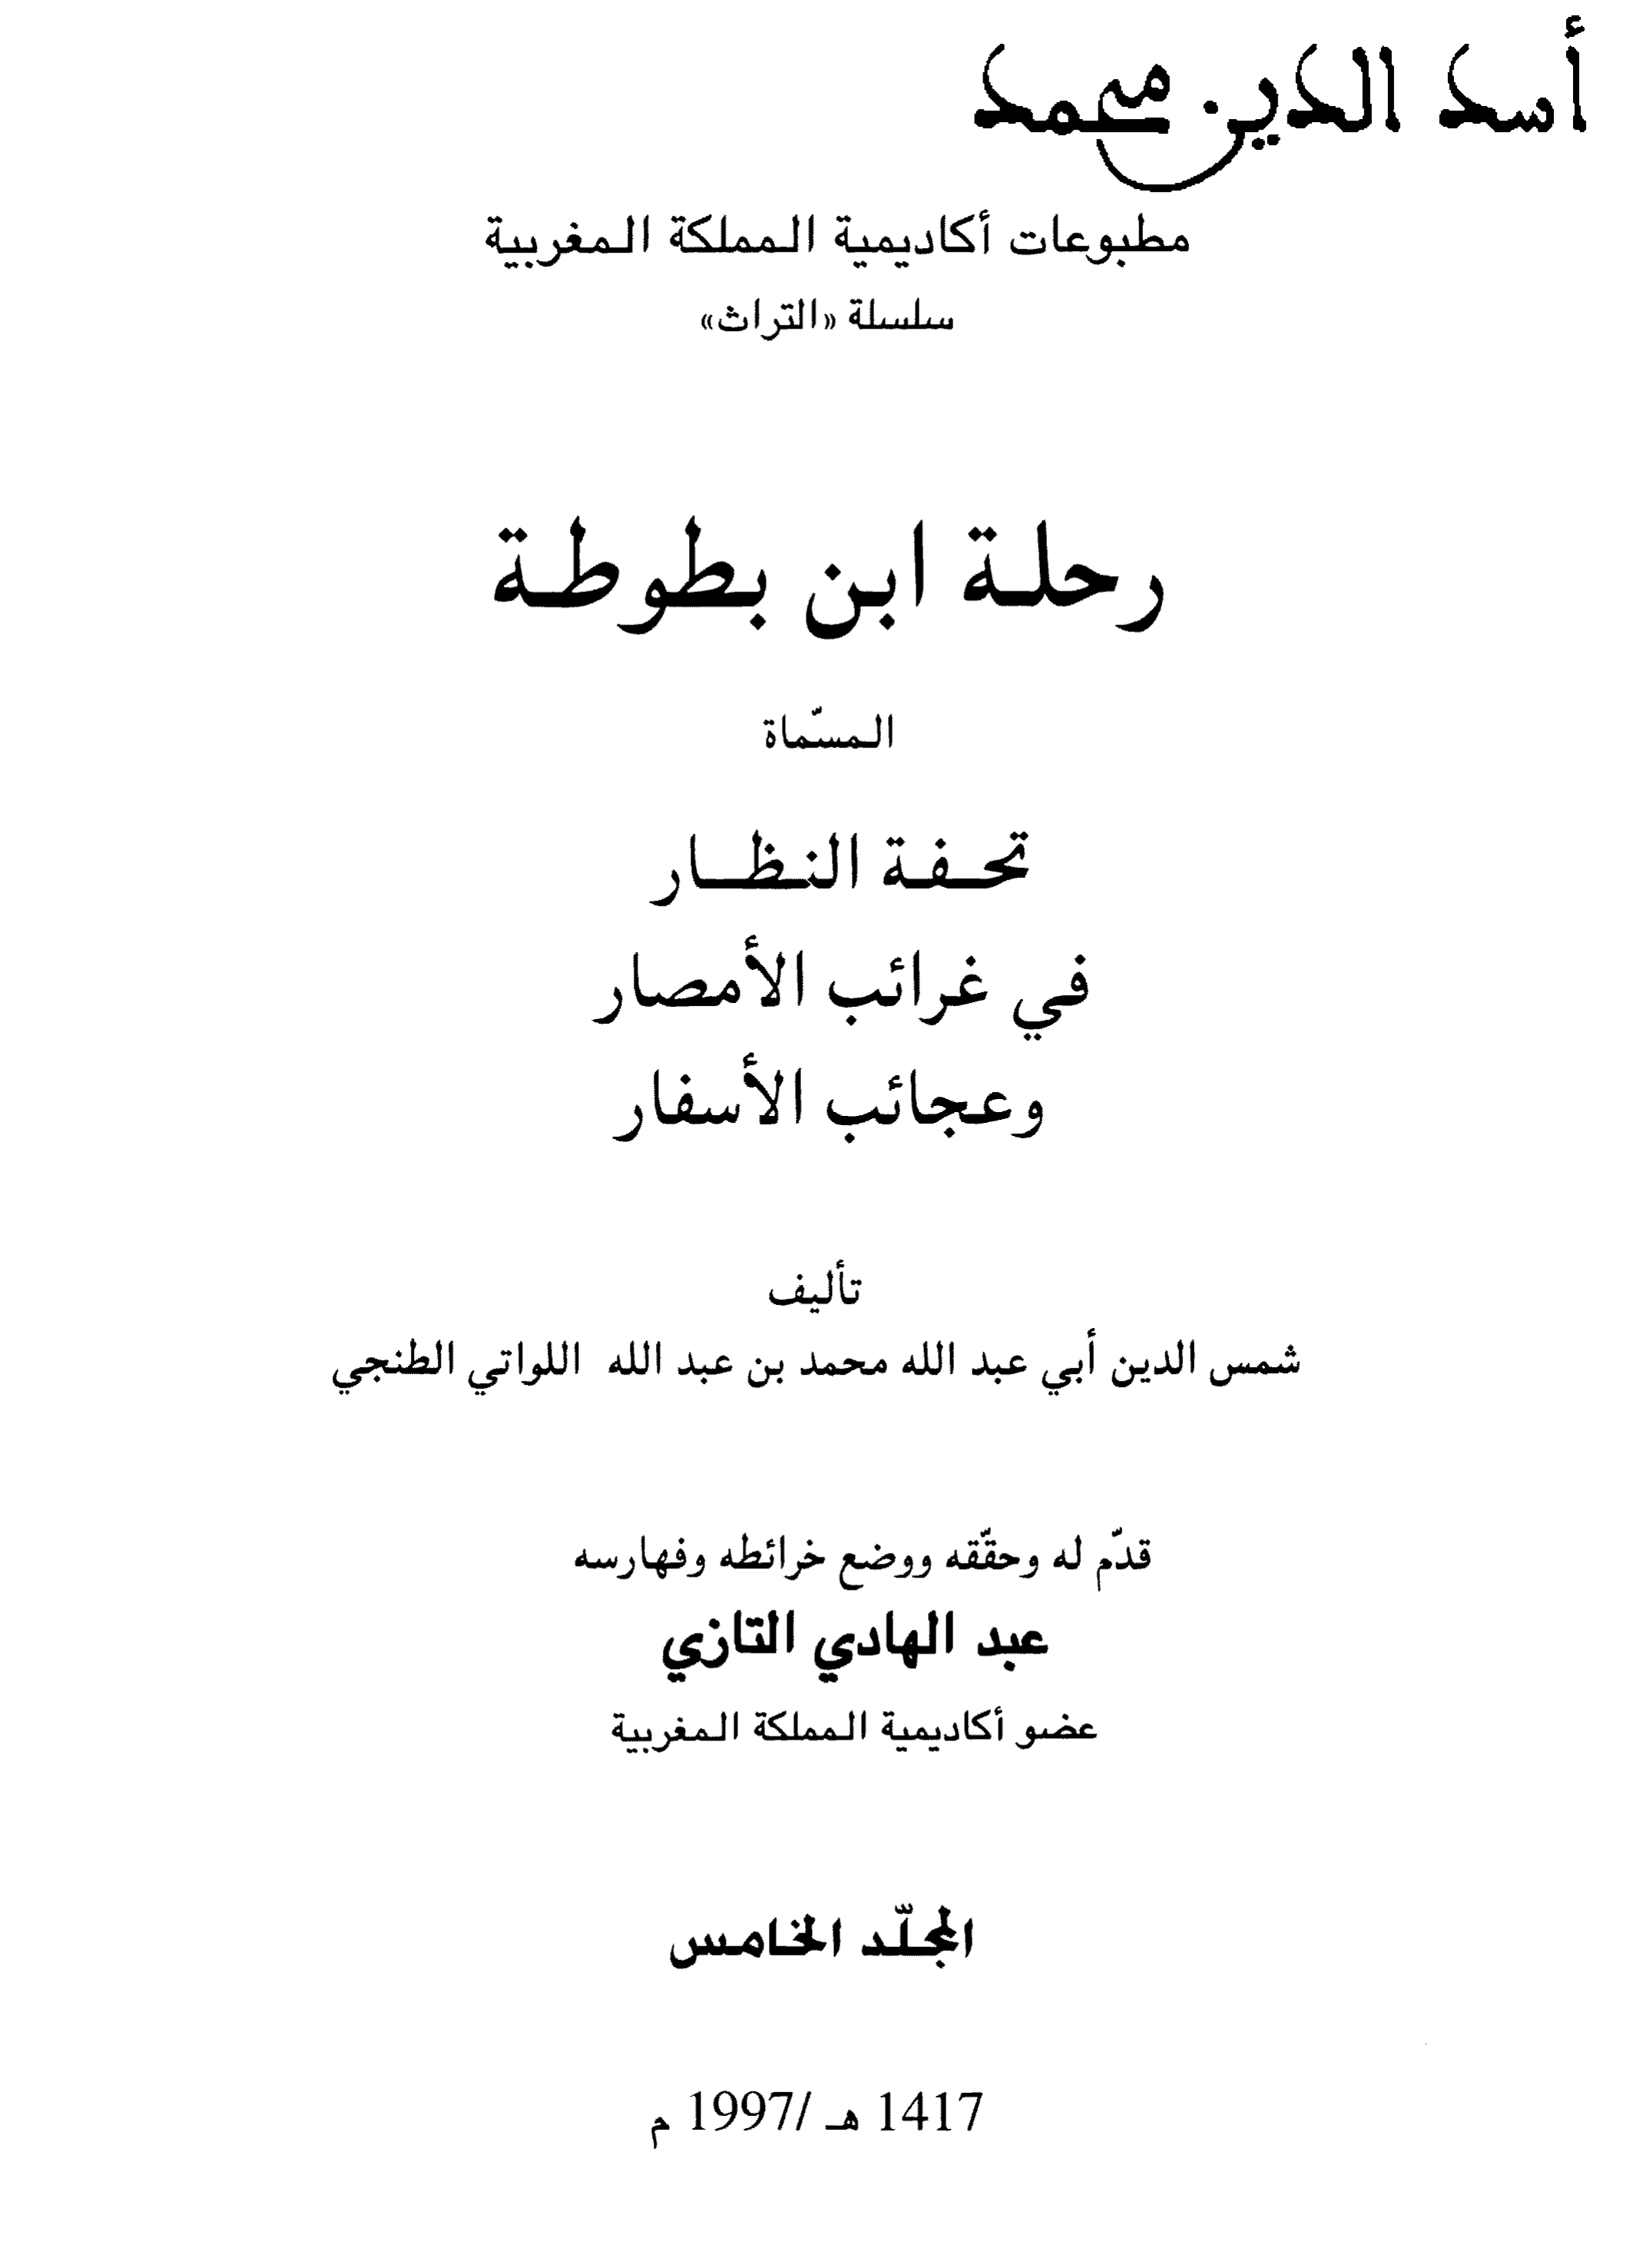 أسد الدين محمد
مطبوعات أكاديمية المملكة المغربية
سلسلة «التراث»
رحلة ابن بطوطة
المسمّاة
تحفة النظار
في غرائب الأمصار
وعجائب الأسفار
تأليف
شمس الدين أبي عبد الله محمد بن عبد الله اللواتي الطنجي
قدّم له وحقّقه ووضع خرائطه وفهارسه
عبد الهادي التازي
عضو أكاديمية المملكة المغربية
المجلّد الخامس
1417 هـ /1997 م